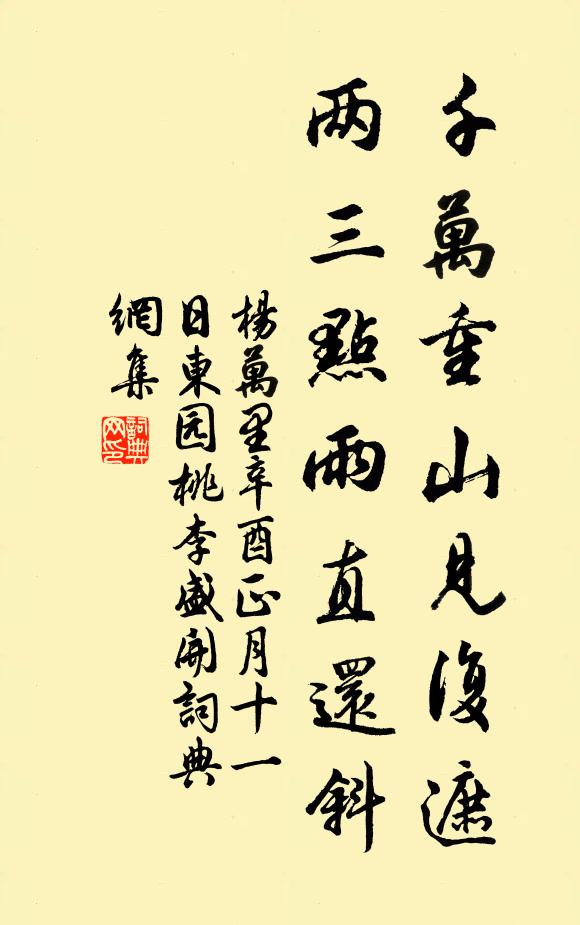 千萬重山見復遮
兩三點雨直還斜
楊萬里辛酉正月十一
日東园桃李盛開詞典
網集
詞典
网印